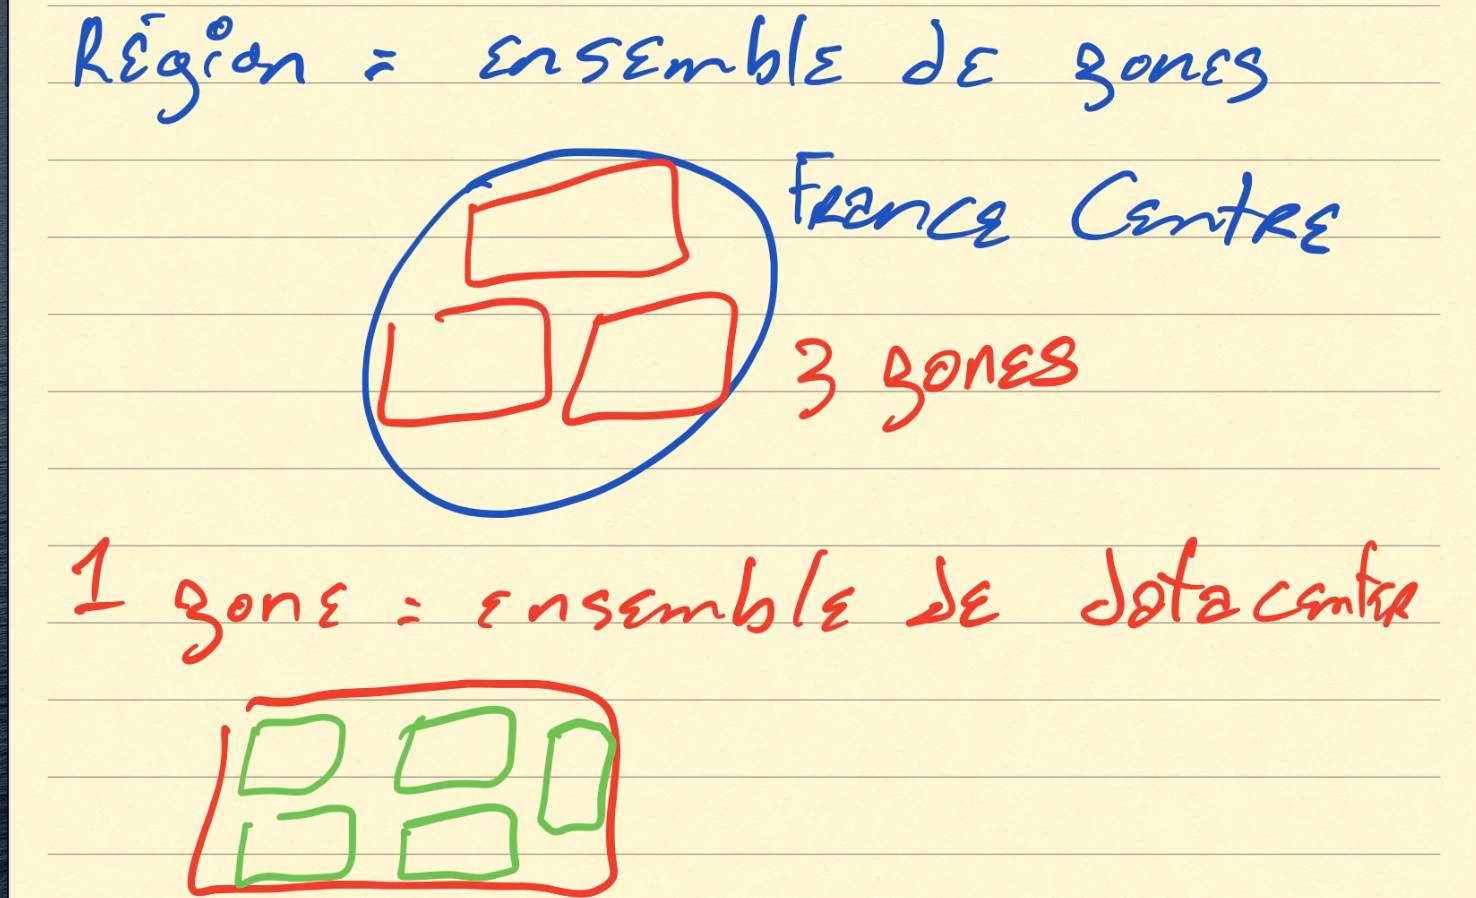 Région = ensemble de zones
France Centre
3 zones
1 zone = ensemble de datacenter